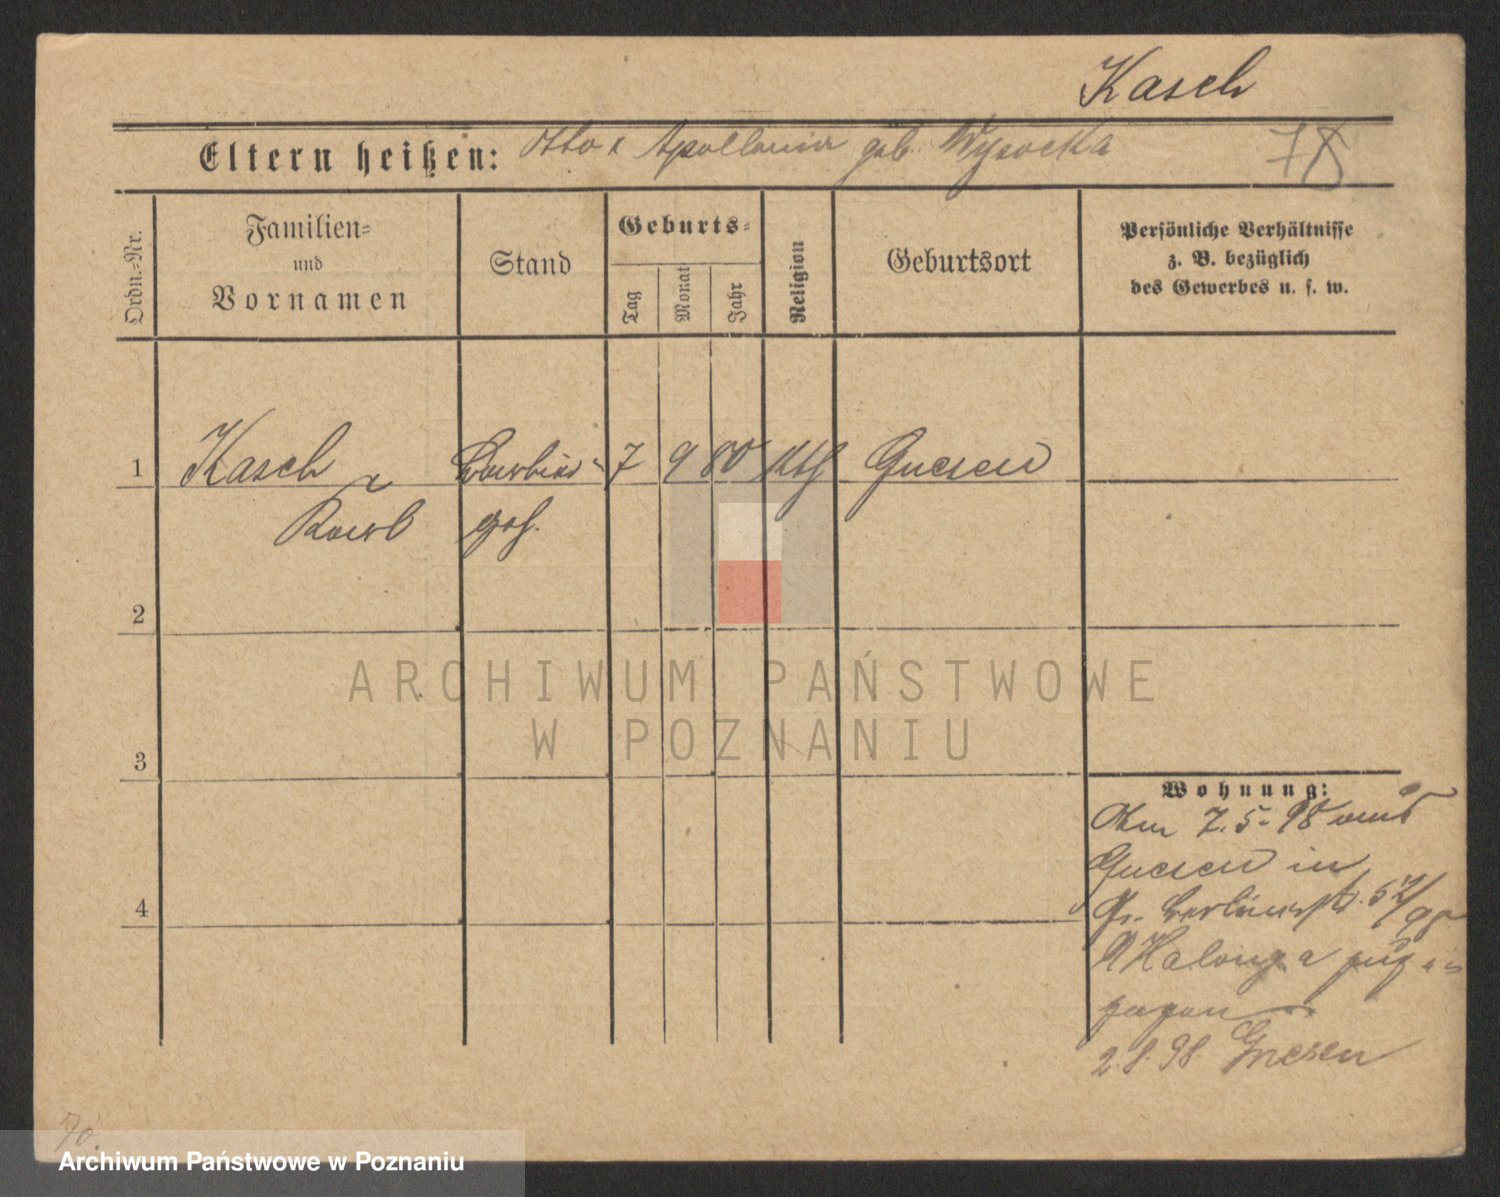 Kasch
Eltern heißen: Otto & Apollonia geb. Wysocka 78
Ordn.-Nr.
Familien-
und
Vornamen
Stand
Geburts-
Tag
Monat
Jahr
Religion
Geburtsort
Persönliche Verhältnisse
z. B. bezüglich
des Gewerbes u. s. w.
1 Kasch Barbier- 7 9 80 kth Gnesen
Karl geh.
2
3
4
Wohnung:
Am 7.5.98 aus
Gnesen in
Gr. Berlinerstr. 57/98
zugezogen
2.8.98. Gnesen
70.
ARCHIWUM PAŃSTWOWE
W POZNANIU
Archiwum Państwowe w Poznaniu